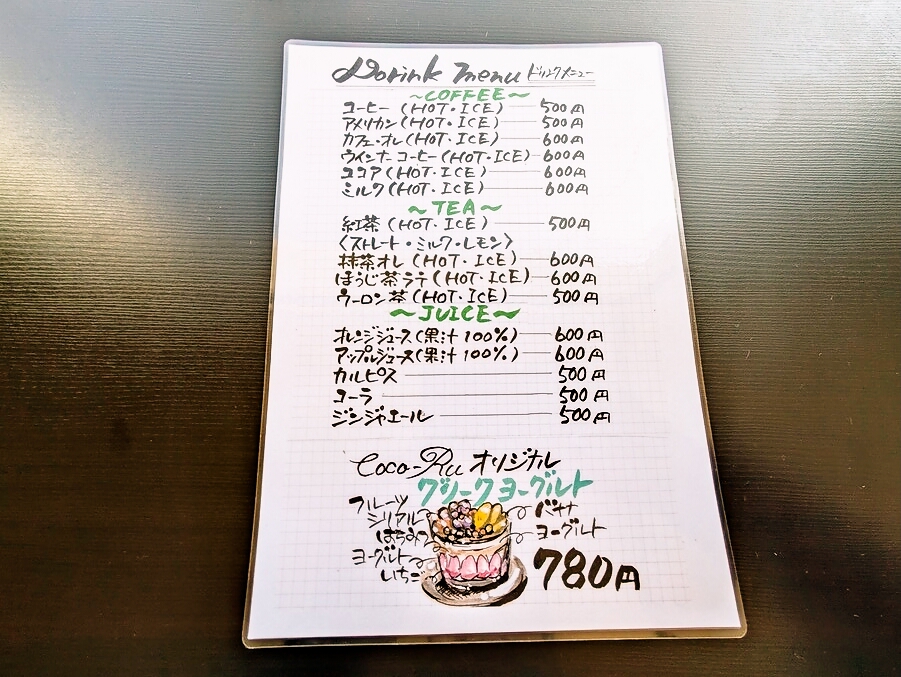 Dorink menu ドリンクメニュー
～COFFEE～
コーヒー (HOT・ICE) 500円
アメリカン (HOT・ICE) 500円
カフェ・オレ (HOT・ICE) 600円
ウインナーコーヒー (HOT・ICE) 600円
ココア (HOT・ICE) 600円
ミルク (HOT・ICE) 600円
～TEA～
紅茶 (HOT・ICE) 500円
〈ストレート・ミルク・レモン〉
抹茶オレ (HOT・ICE) 600円
ほうじ茶ラテ (HOT・ICE) 600円
ウーロン茶 (HOT・ICE) 500円
～JUICE～
オレンジジュース (果汁100%) 600円
アップルジュース (果汁100%) 600円
カルピス 500円
コーラ 500円
ジンジャエール 500円
Coco-Ru オリジナル
グリークヨーグルト
フルーツ
シリアル
はちみつ
ヨーグルト
いちご
バナナ
ヨーグルト
780円